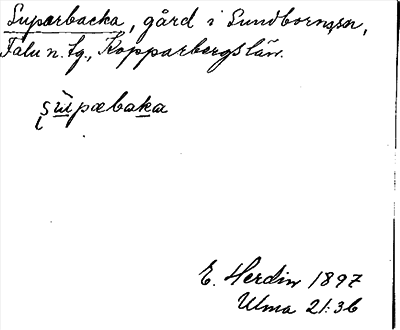 Suparbacka, gård i Sundbornssn,
Falu n. tg., Kopparbergs län.
sùpæbaka
E. Herdin 1897
Ulma 21:36